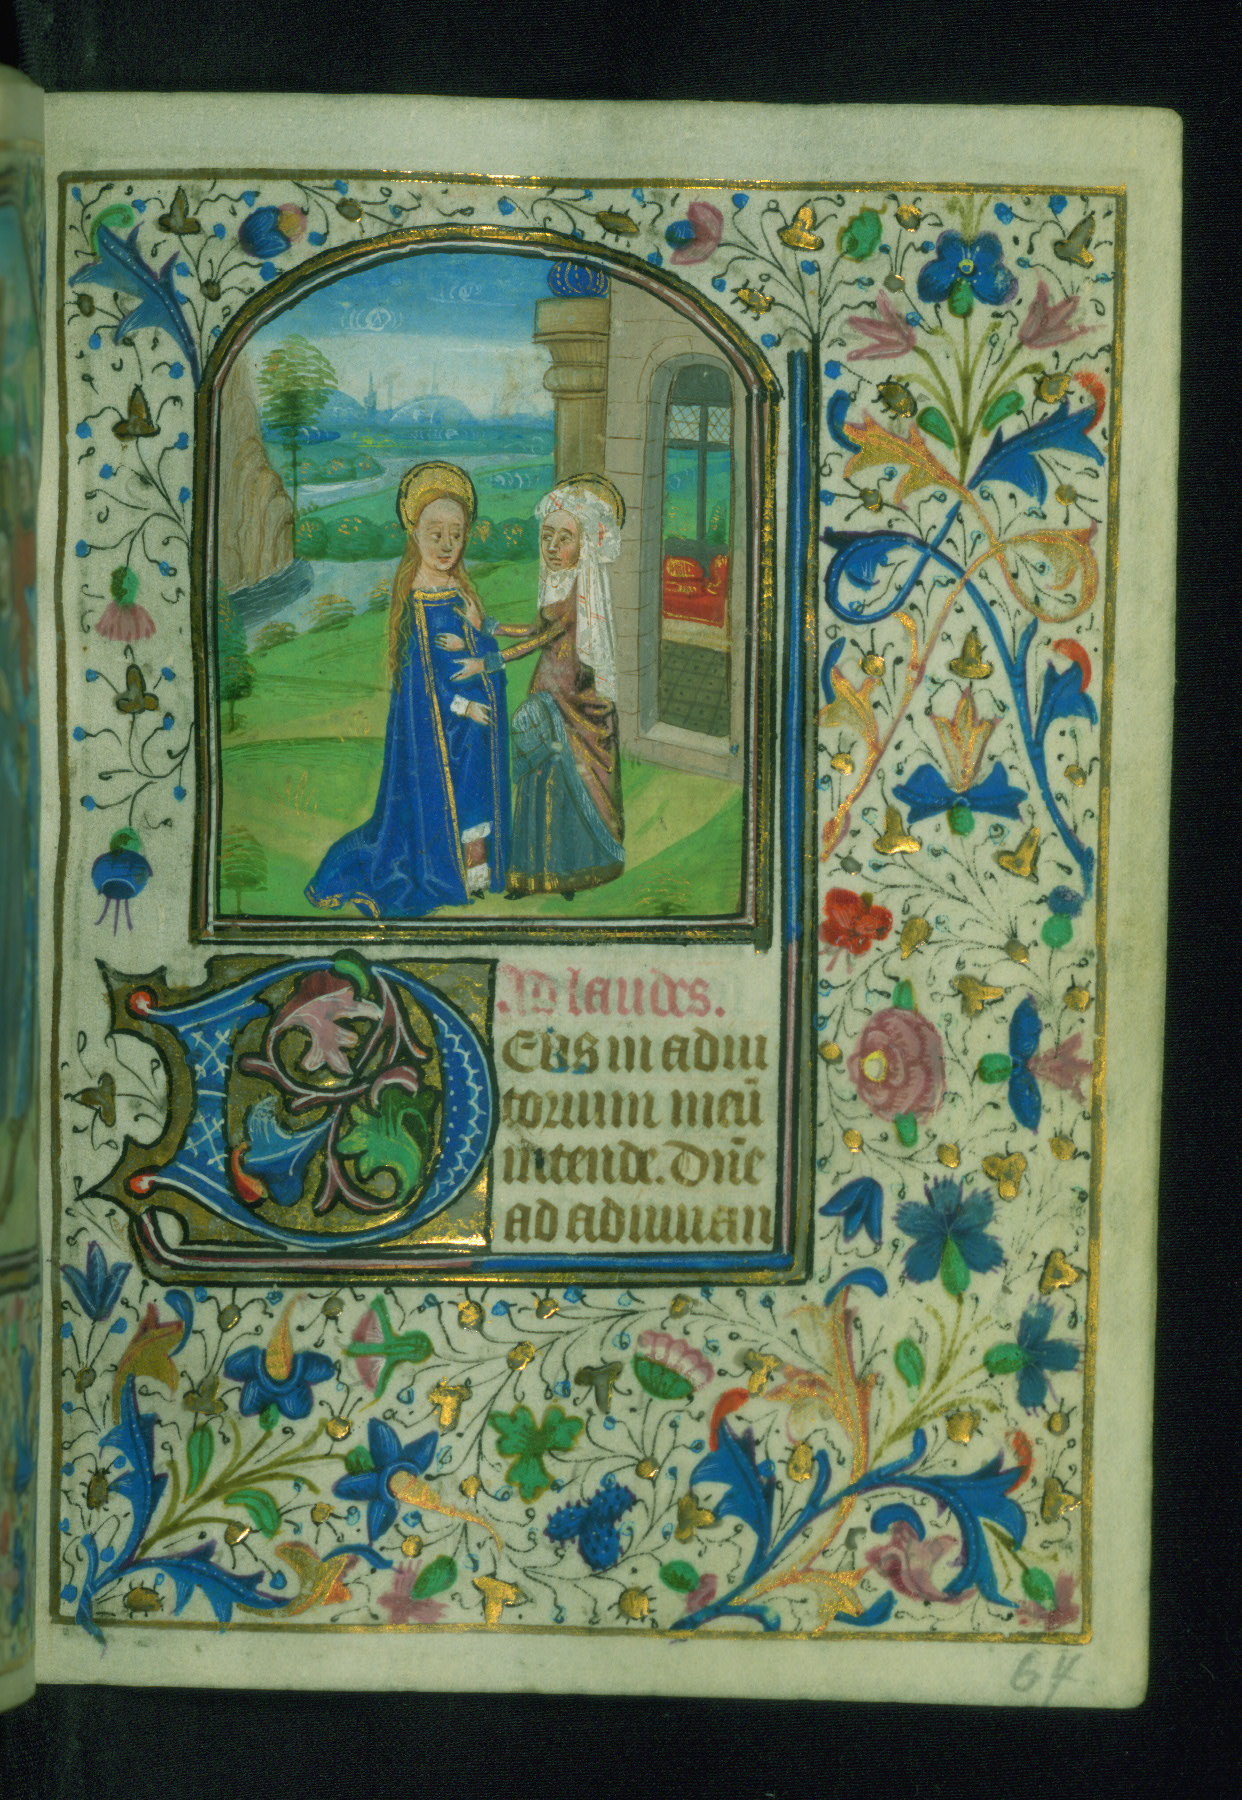 Ad laudes.
DEUS in adiu
torium meū
intende. Dn̄e
ad adiuuan
64